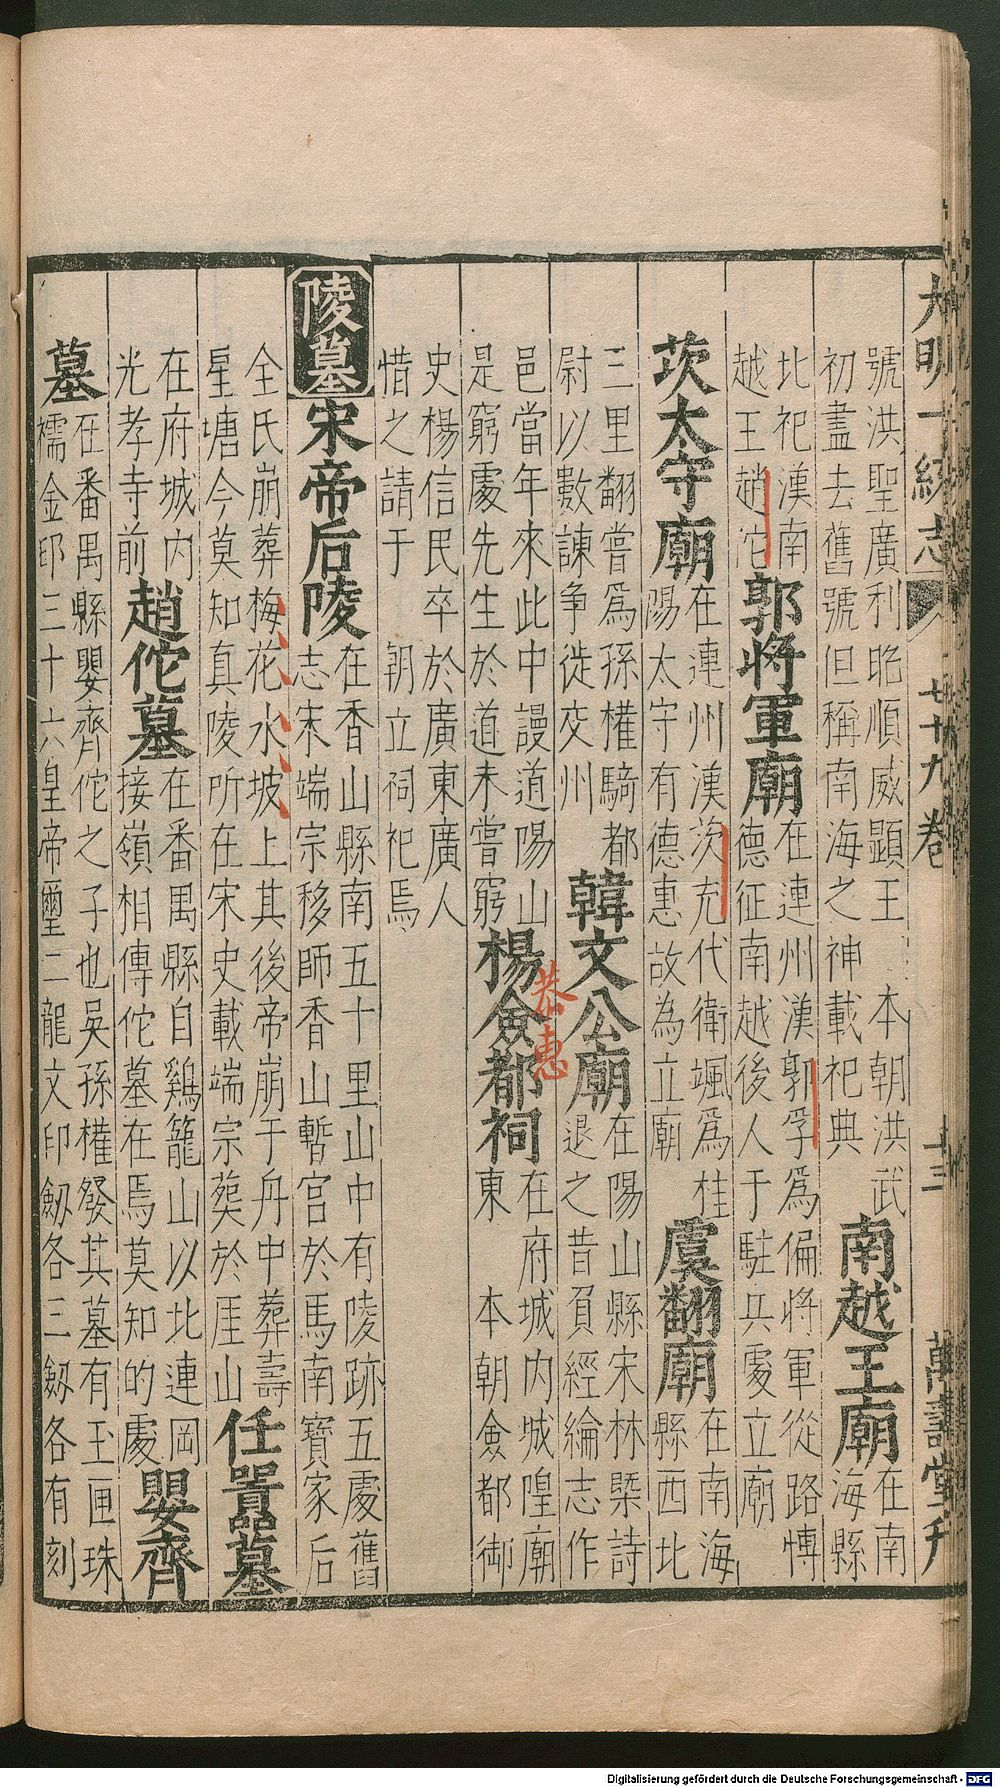 大明一統志 七十九卷 十三 萬壽堂刋
號洪聖廣利昭順威顯王 本朝洪武
初盡去舊號但稱南海之神載祀典
南越王廟
在南
海縣
比祀漢南
越王趙佗
郭將軍廟
在連州漢郭孚為偏將軍從路愽
德征南越後人于駐兵處立廟
茨太守廟
在連州漢茨充代衛颯為桂
陽太守有德惠故為立廟
虞翻廟
在南海
縣西北
三里翻嘗為孫權騎都
尉以數諫争徙交州
韓文公廟
在陽山縣宋林槩詩
退之昔負經綸志作
邑當年來此中謾道陽山
是窮處先生於道未嘗窮
楊僉都祠
恭惠
在府城内城隍廟
東 本朝僉都御
史楊信民卒於廣東廣人
惜之請于 朝立祠祀焉
陵墓
宋帝后陵
在香山縣南五十里山中有陵跡五處舊
志宋端宗移師香山暫宫於馬南寶家后
全氏崩葬梅花水坡上其後帝崩于舟中葬壽
星塘今莫知真陵所在宋史載端宗葬於厓山
任囂墓
在府城内
光孝寺前
趙佗墓
在番禺縣自鷄籠山以北連岡
接嶺相傳佗墓在焉莫知的處
嬰齊
墓
在番禺縣嬰齊佗之子也吳孫權發其墓有玉匣珠
襦金印三十六皇帝璽二龍文印劔各三劔各有刻
Digitalisierung gefördert durch die Deutsche Forschungsgemeinschaft - DFG